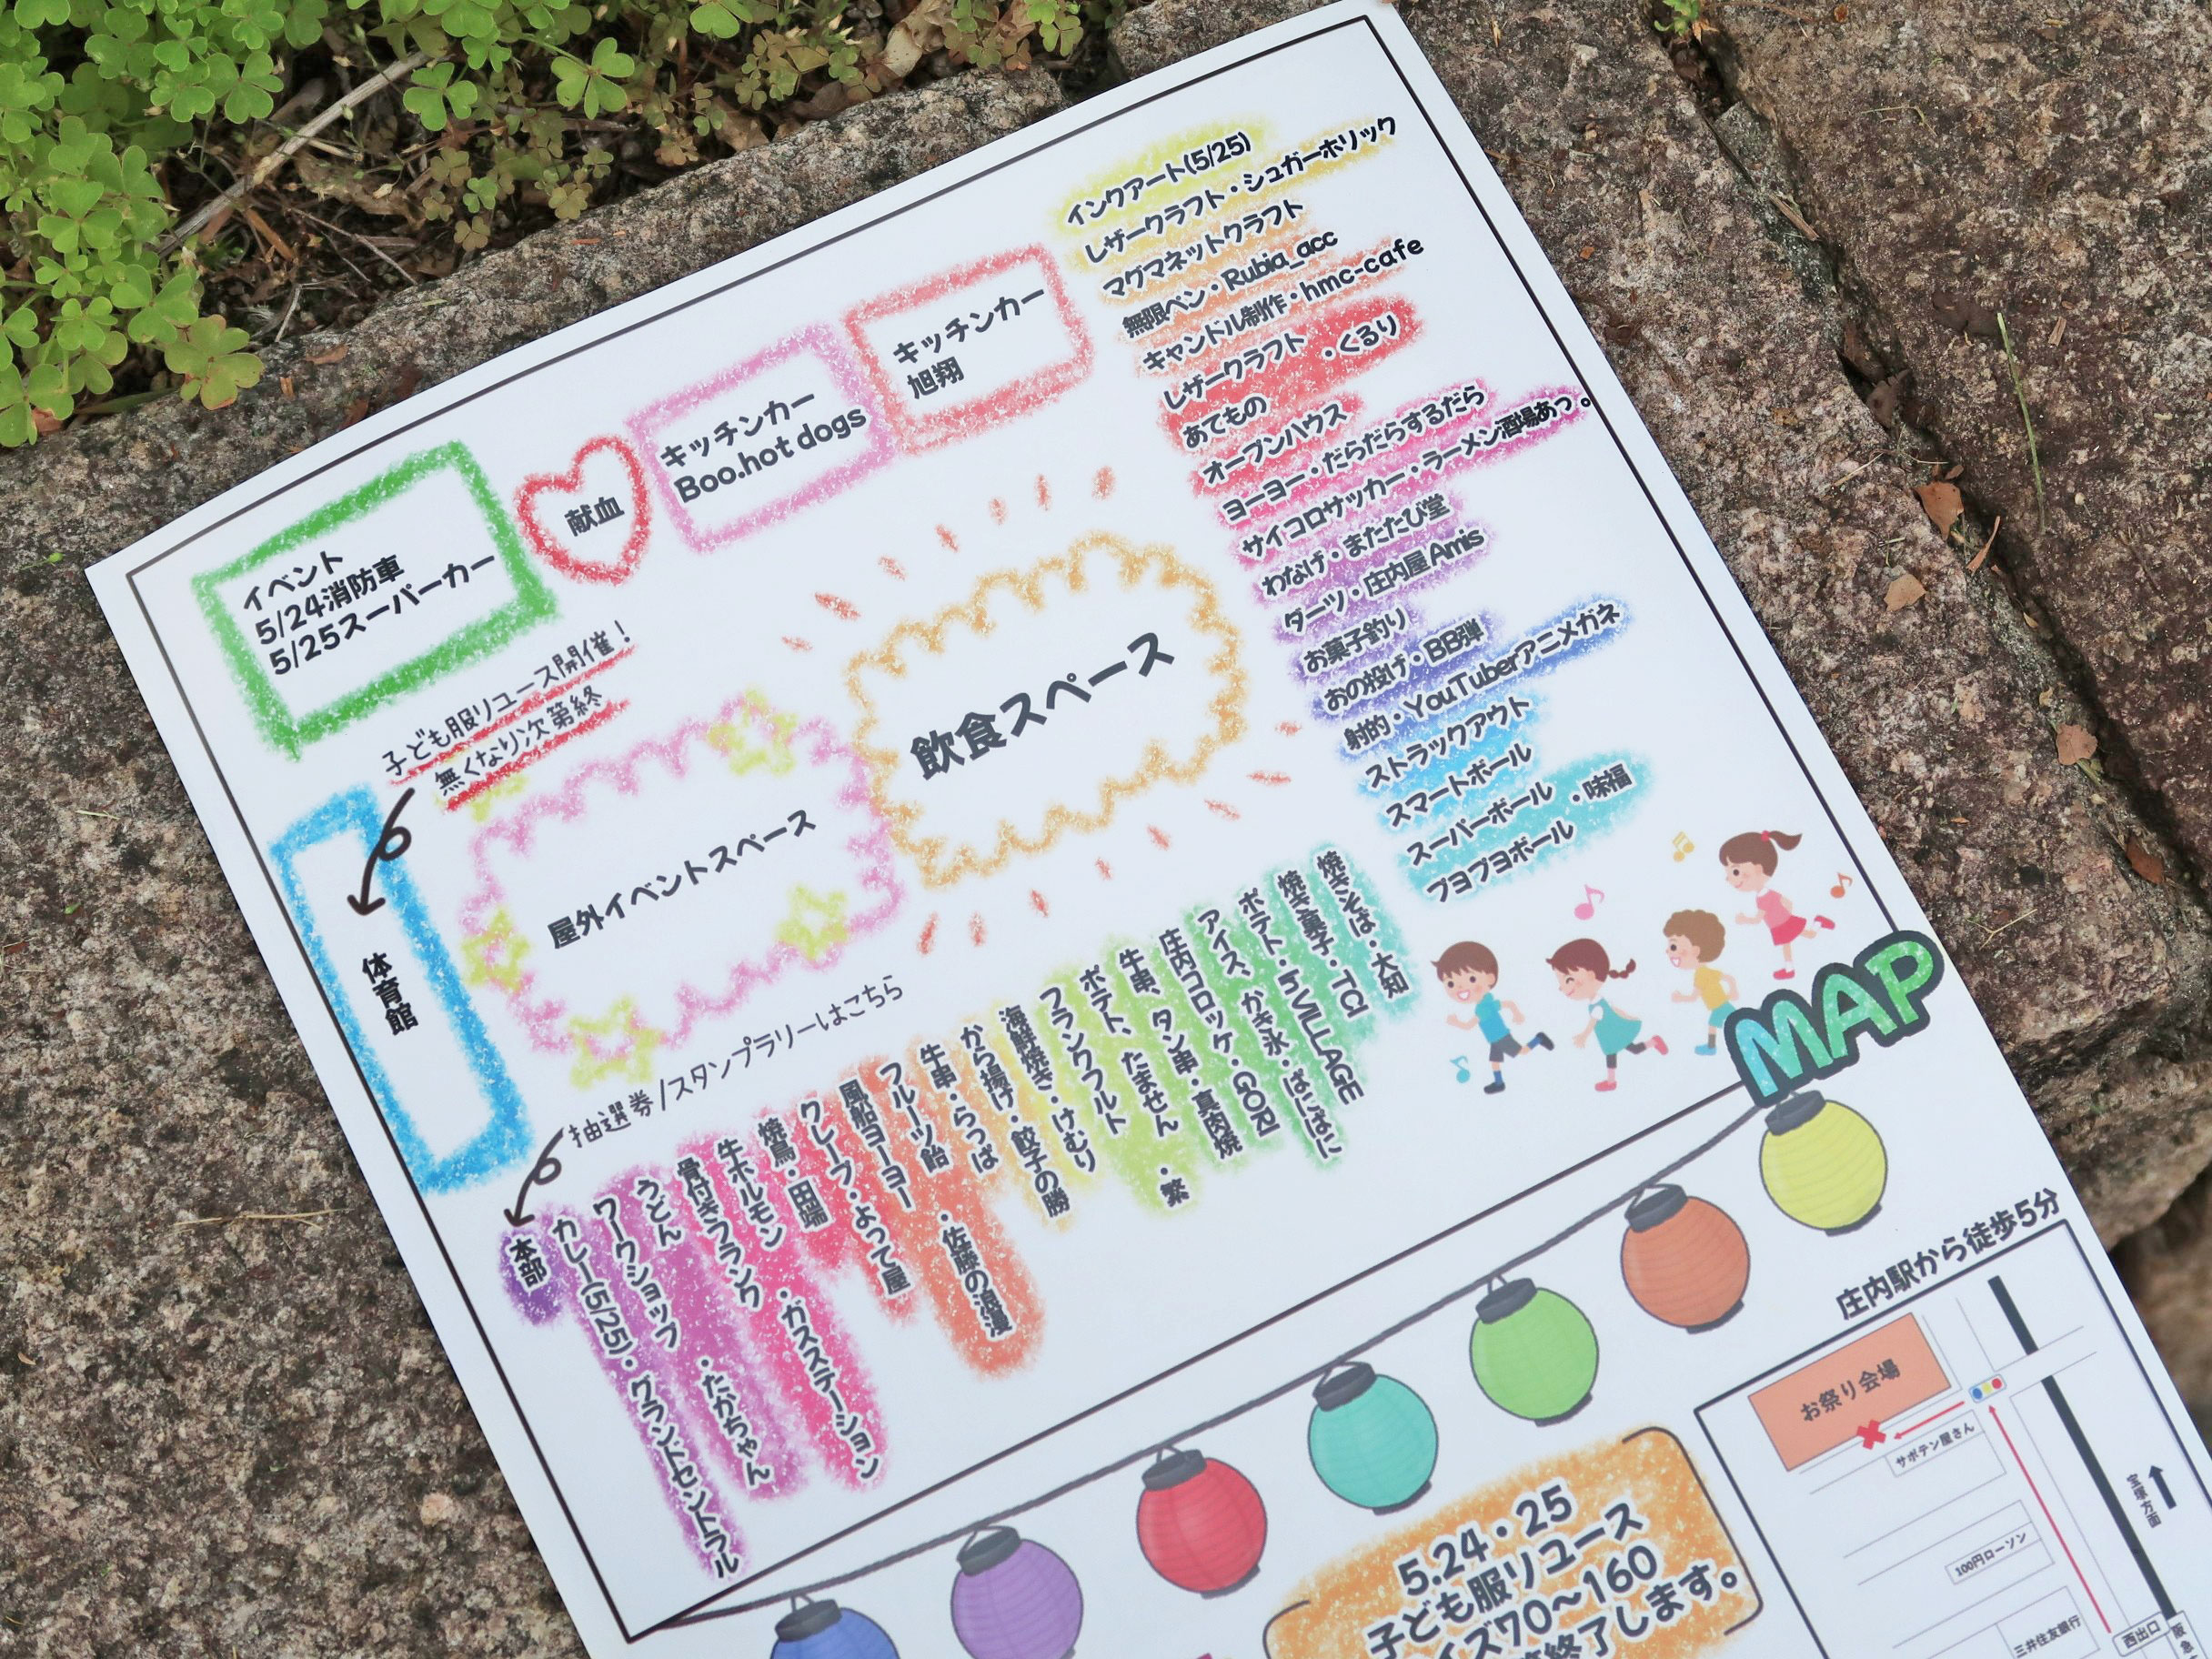 インクアート(5/25)
レザークラフト・シュガーホリック
マグマネットクラフト
無限ペン・Rubia_acc
キャンドル制作・hmc-cafe
レザークラフト
・くるり
あてもの
オープンハウス
ヨーヨー・だらだらするだら
サイコロサッカー・ラーメン酒場あっ。
わなげ・またたび堂
ダーツ・庄内屋Amis
お菓子釣り
おの投げ・BB弾
射的・YouTuberアニメガネ
ストラックアウト
スマートボール
スーパーボール
・味福
プヨプヨボール
キッチンカー
旭翔
キッチンカー
Boo.hot dogs
献血
イベント
5/24消防車
5/25スーパーカー
子ども服リユース開催！
無くなり次第終
体育館
屋外イベントスペース
飲食スペース
抽選券/スタンプラリーはこちら
焼きそば・大知
焼き菓子・TCI
ポテト・in VILLAGE
アイス、かき氷・ぱにぱに
庄内コロッケ・GORI
牛串、タン串・真肉焼
ポテト、たません
・繁
フランクフルト
海鮮焼き・けむり
から揚げ・餃子の勝
牛串・らっぱ
フルーツ飴
・佐藤の浪漫
風船ヨーヨー
クレープ・よって屋
焼鳥・田端
牛ホルモン
・ガスステーション
骨付きフランク
うどん
・たかちゃん
ワークショップ
カレー(5/25)・グランドセントラル
本部
MAP
庄内駅から徒歩5分
お祭り会場
サボテン屋さん
100円ローソン
三井住友銀行
西出口
宝塚方面
阪急
5.24・25
子ども服リユース
イズ70～160
終了します。